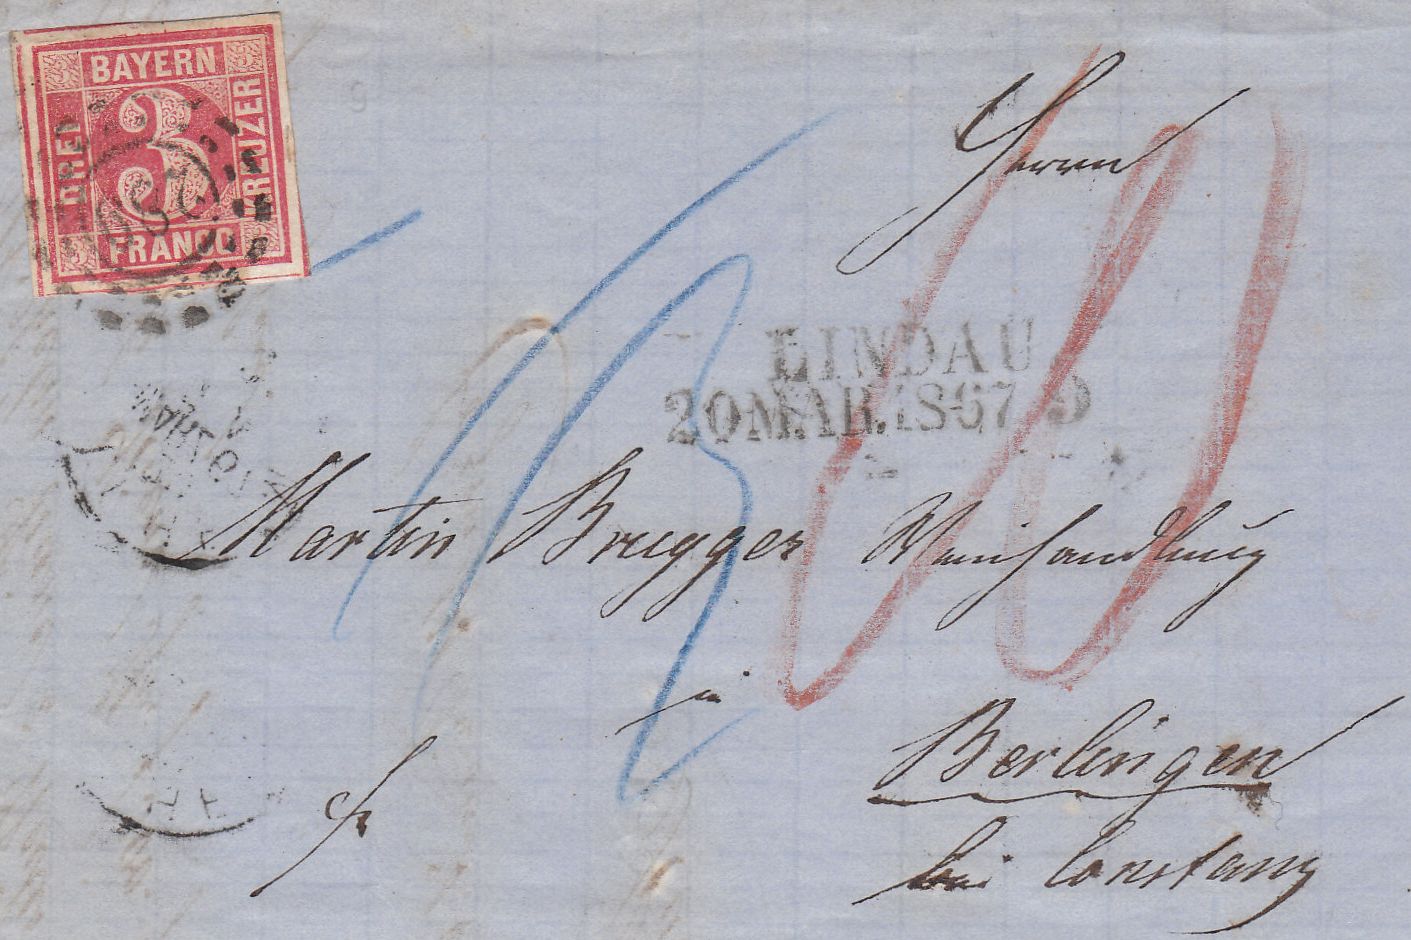 3 3
BAYERN
DREI
3
KREUZER
FRANCO
3 3
Herrn
LINDAU
20 MAR. 1867 5
Martin Brugger Weinhandlung
in
fr
Berlingen
bei Constanz
10